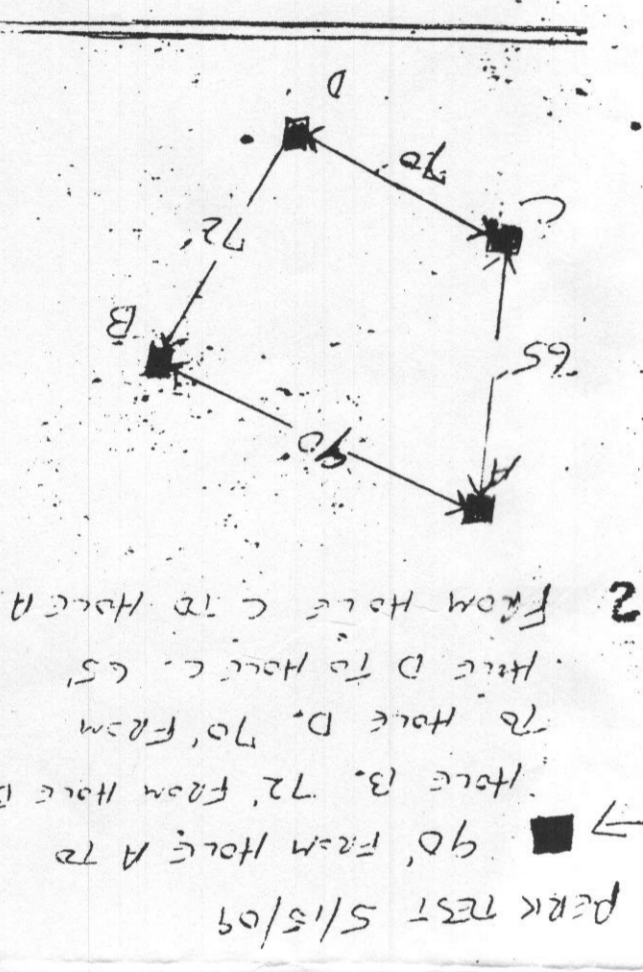 PERK TEST 5/15/09
90' FROM HOLE A TO
HOLE B. 72' FROM HOLE B
TO HOLE D. 70' FROM
HOLE D TO HOLE C. 65'
FROM HOLE C TO HOLE A
2
A
90
65
B
72'
C
70
D